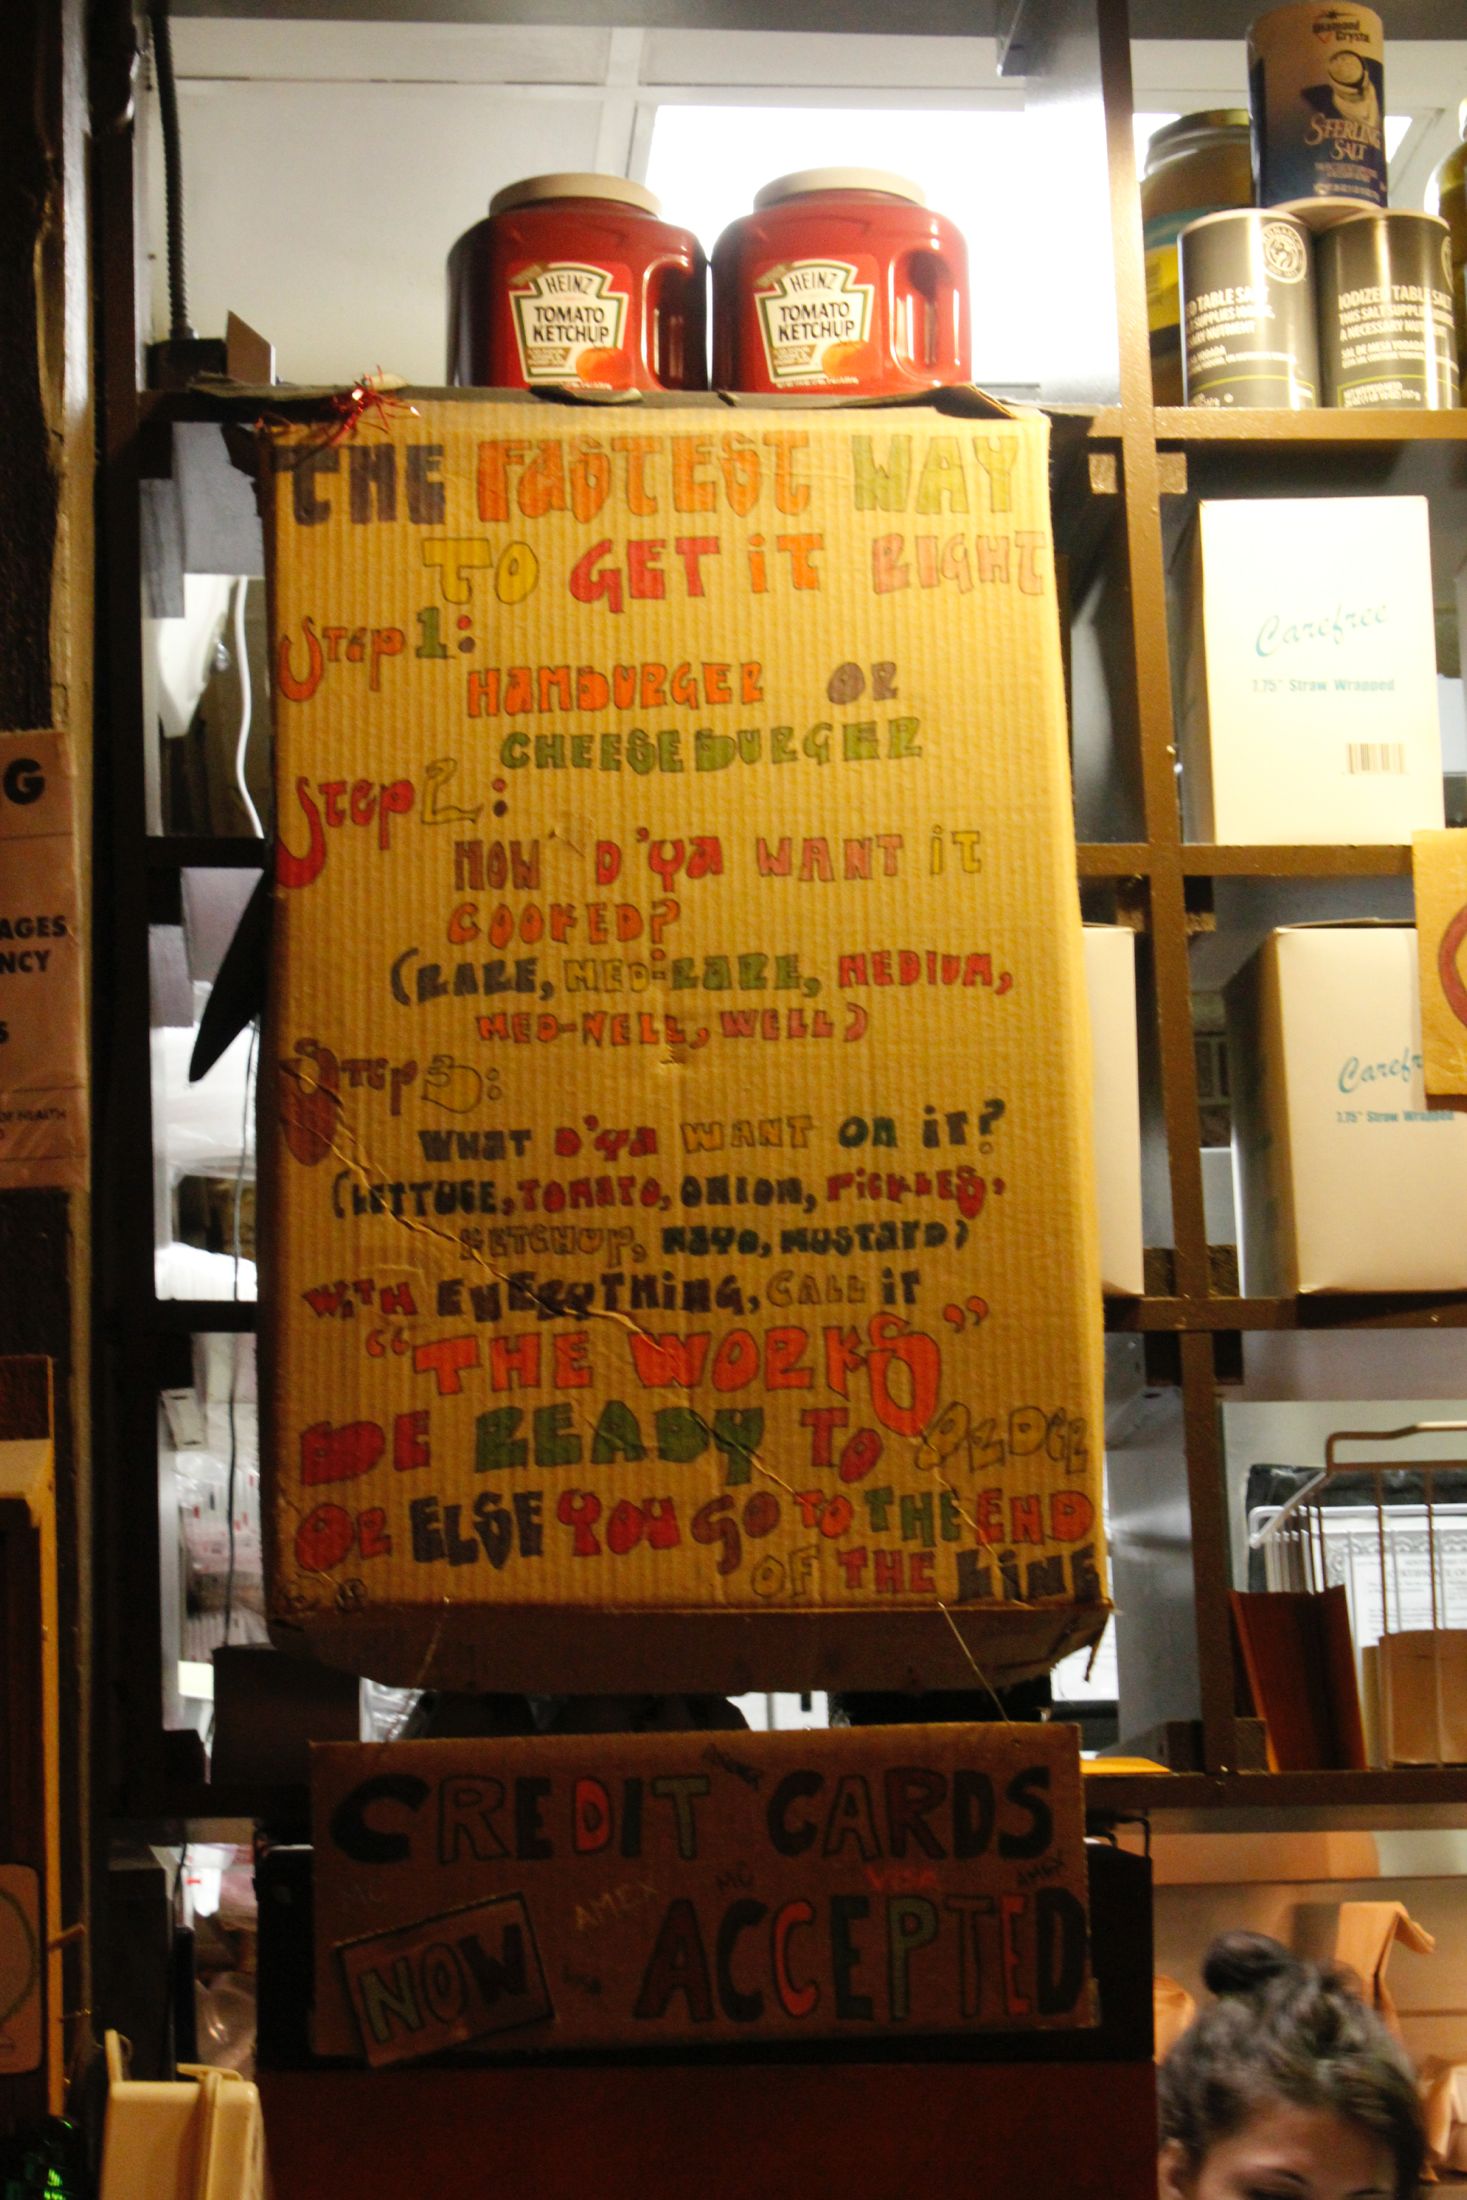 Diamond
Crystal
STERLING
SALT
HEINZ
TOMATO
KETCHUP
HEINZ
TOMATO
KETCHUP
D TABLE SALT
IODIZED TABLE SALT
THIS SALT SUPPLIES IODIDE,
A NECESSARY NUTRIENT
SAL DE MESA YODADA
THE FASTEST WAY
TO GET iT RIGHT
Step 1:
HAMBURGER OR
CHEESEBURGER
Step 2:
HOW D'YA WANT iT
COOKED?
(RARE, MED-RARE, MEDIUM,
MED-WELL, WELL)
Step 3:
WHAT D'YA WANT ON iT?
(LETTUCE, TOMATO, ONION, PICKLES,
KETCHUP, MAYO, MUSTARD)
WITH EVERYTHING, CALL iT
"THE WORKS"
BE READY TO ORDER
OR ELSE YOU GO TO THE END
OF THE LINE
Carefree
7.75" Straw Wrapped
Carefr
7.75" Straw Wrapped
G
AGES
NCY
S
OF HEALTH
CREDIT CARDS
MC AMEX MC VISA AMEX
NOW ACCEPTED